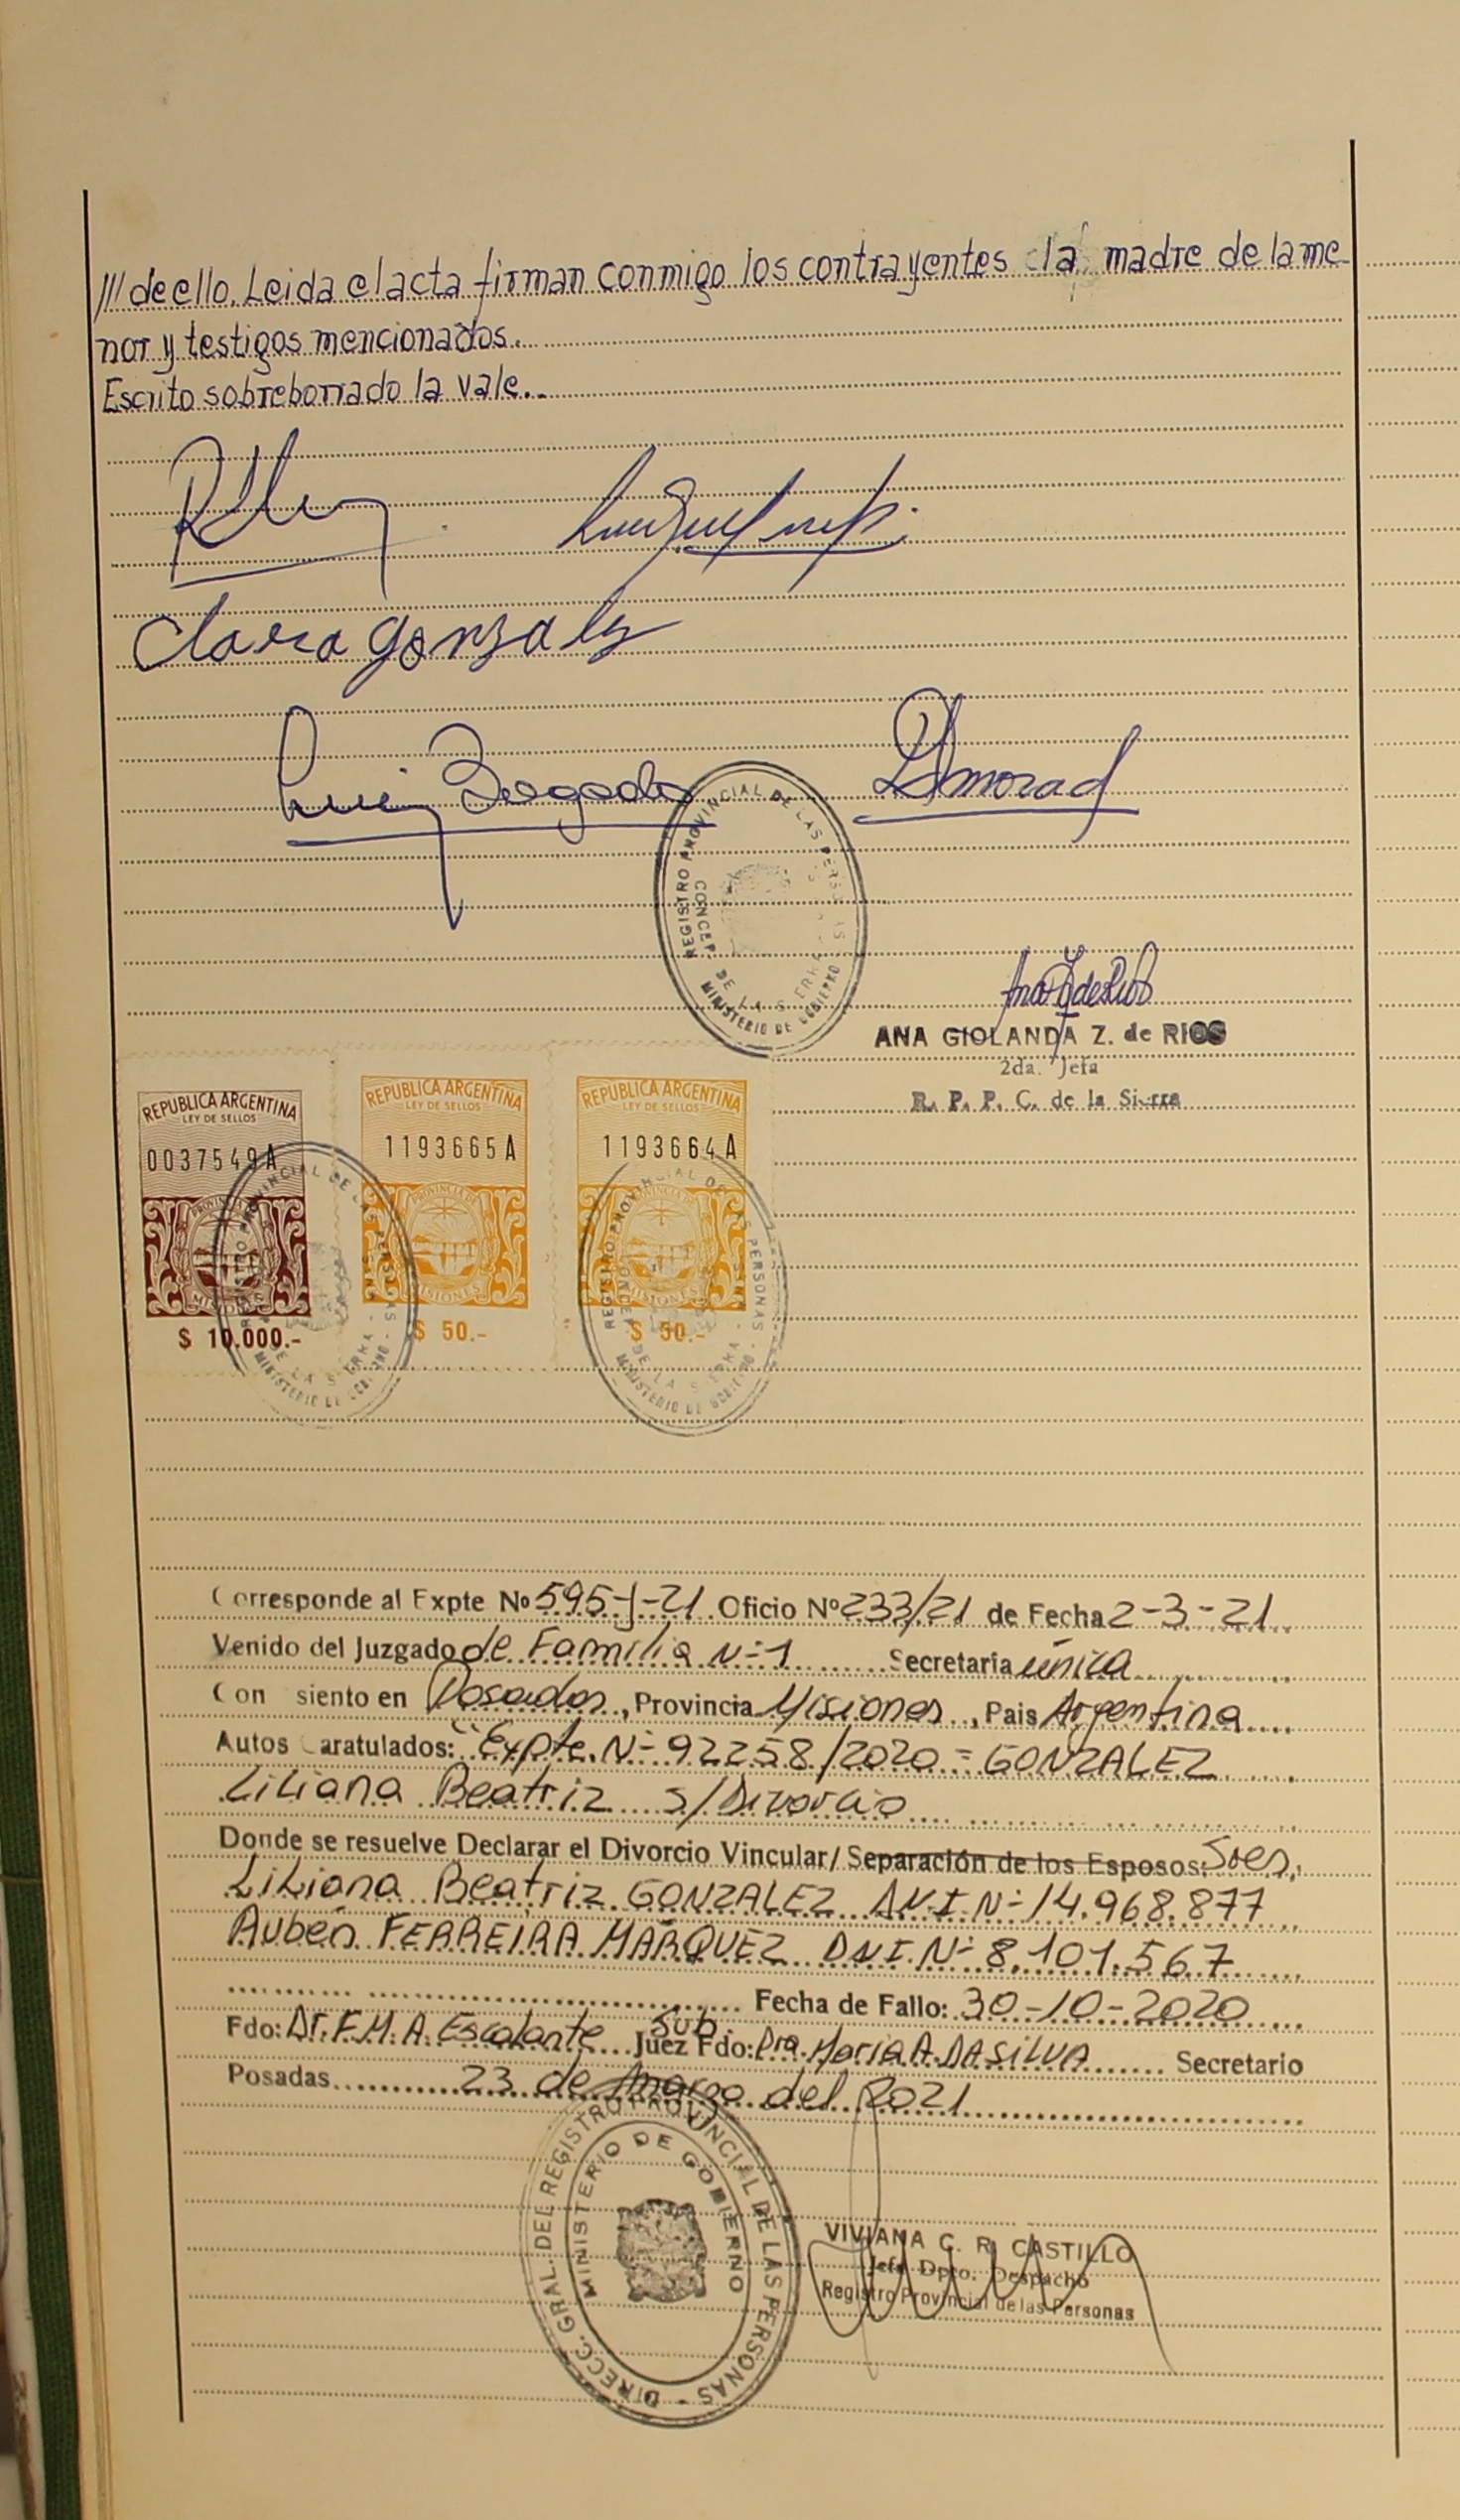 /// de ello. Leida el acta firman conmigo los contrayentes la madre de la me-
nor y testigos mencionados.
Escrito sobreborrado la vale..
Clara Gonzales
REGISTRO PROVINCIAL DE LAS PERSONAS
CONCEP. DE LA SIERRA
MINISTERIO DE GOBIERNO
ANA GIOLANDA Z. de RIOS
2da. Jefa
R. P. P. C. de la Sierra
REPUBLICA ARGENTINA
LEY DE SELLOS
0037549A
PROVINCIA DE
MISIONES
$ 10.000.-
REPUBLICA ARGENTINA
LEY DE SELLOS
1193665A
PROVINCIA DE
MISIONES
$ 50.-
REPUBLICA ARGENTINA
LEY DE SELLOS
1193664A
PROVINCIA DE
MISIONES
$ 50.-
REGISTRO PROVINCIAL DE LAS PERSONAS
DE LA SIERRA
MINISTERIO DE GOBIERNO
REGISTRO PROVINCIAL DE LAS PERSONAS
DE LA SIERRA
MINISTERIO DE GOBIERNO
Corresponde al Expte Nº 595-J-21 Oficio Nº 233/21 de Fecha 2-3-21
Venido del Juzgado de Familia Nº 1 Secretaría única
Con siento en Posadas, Provincia Misiones, Pais Argentina
Autos Caratulados: "Expte. Nº 92258/2020 = GONZALEZ
Liliana Beatriz s/Divorcio
Donde se resuelve Declarar el Divorcio Vincular/ Separación de los Esposos: Sres,
Liliana Beatriz GONZALEZ D.N.I. Nº 14.968.877
Rubén FERREIRA MARQUEZ DNI. Nº 8.101.567
Fecha de Fallo: 30-10-2020
Fdo: Dr. F.M.A. Escalante Sub. Juez Fdo: Dra. Maria A. DASILVA Secretario
Posadas 23 de Marzo del 2021
DIRECC. GRAL. DEL REGISTRO PROVINCIAL DE LAS PERSONAS
MINISTERIO DE GOBIERNO
VIVIANA C. R. CASTILLO
Jefa Dpto. Despacho
Registro Provincial de las Personas